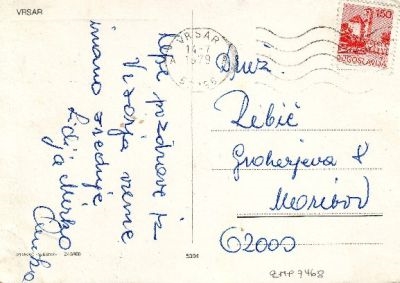 VRSAR
Lepe pozdrave iz
Vrsarja vreme
imamo srednje
Lidija Mirko
VRSAR
14-7
1979
1.50
JUGOSLAVIJA
Druž.
Zebić
Groharjeva 8
Maribor
62000
5334
ZAGREB